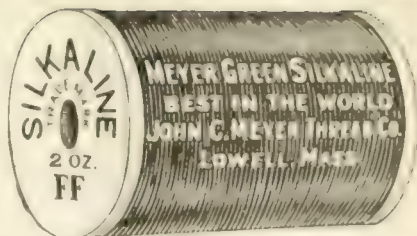 SILKALINE
TRADE MARK
2 OZ.
FF
MEYER GREEN SILKALINE
BEST IN THE WORLD
JOHN C. MEYER THREAD CO.
LOWELL, MASS.